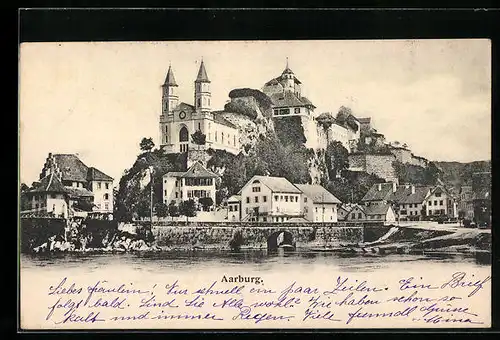 Aarburg.
Liebes Fräulein! Nur schnell ein paar Zeilen. Ein Brief
folgt bald. Sind Sie Alle wohl? Wir haben schon so
kalt und immer Regen. Viele freundl Grüsse
Mina